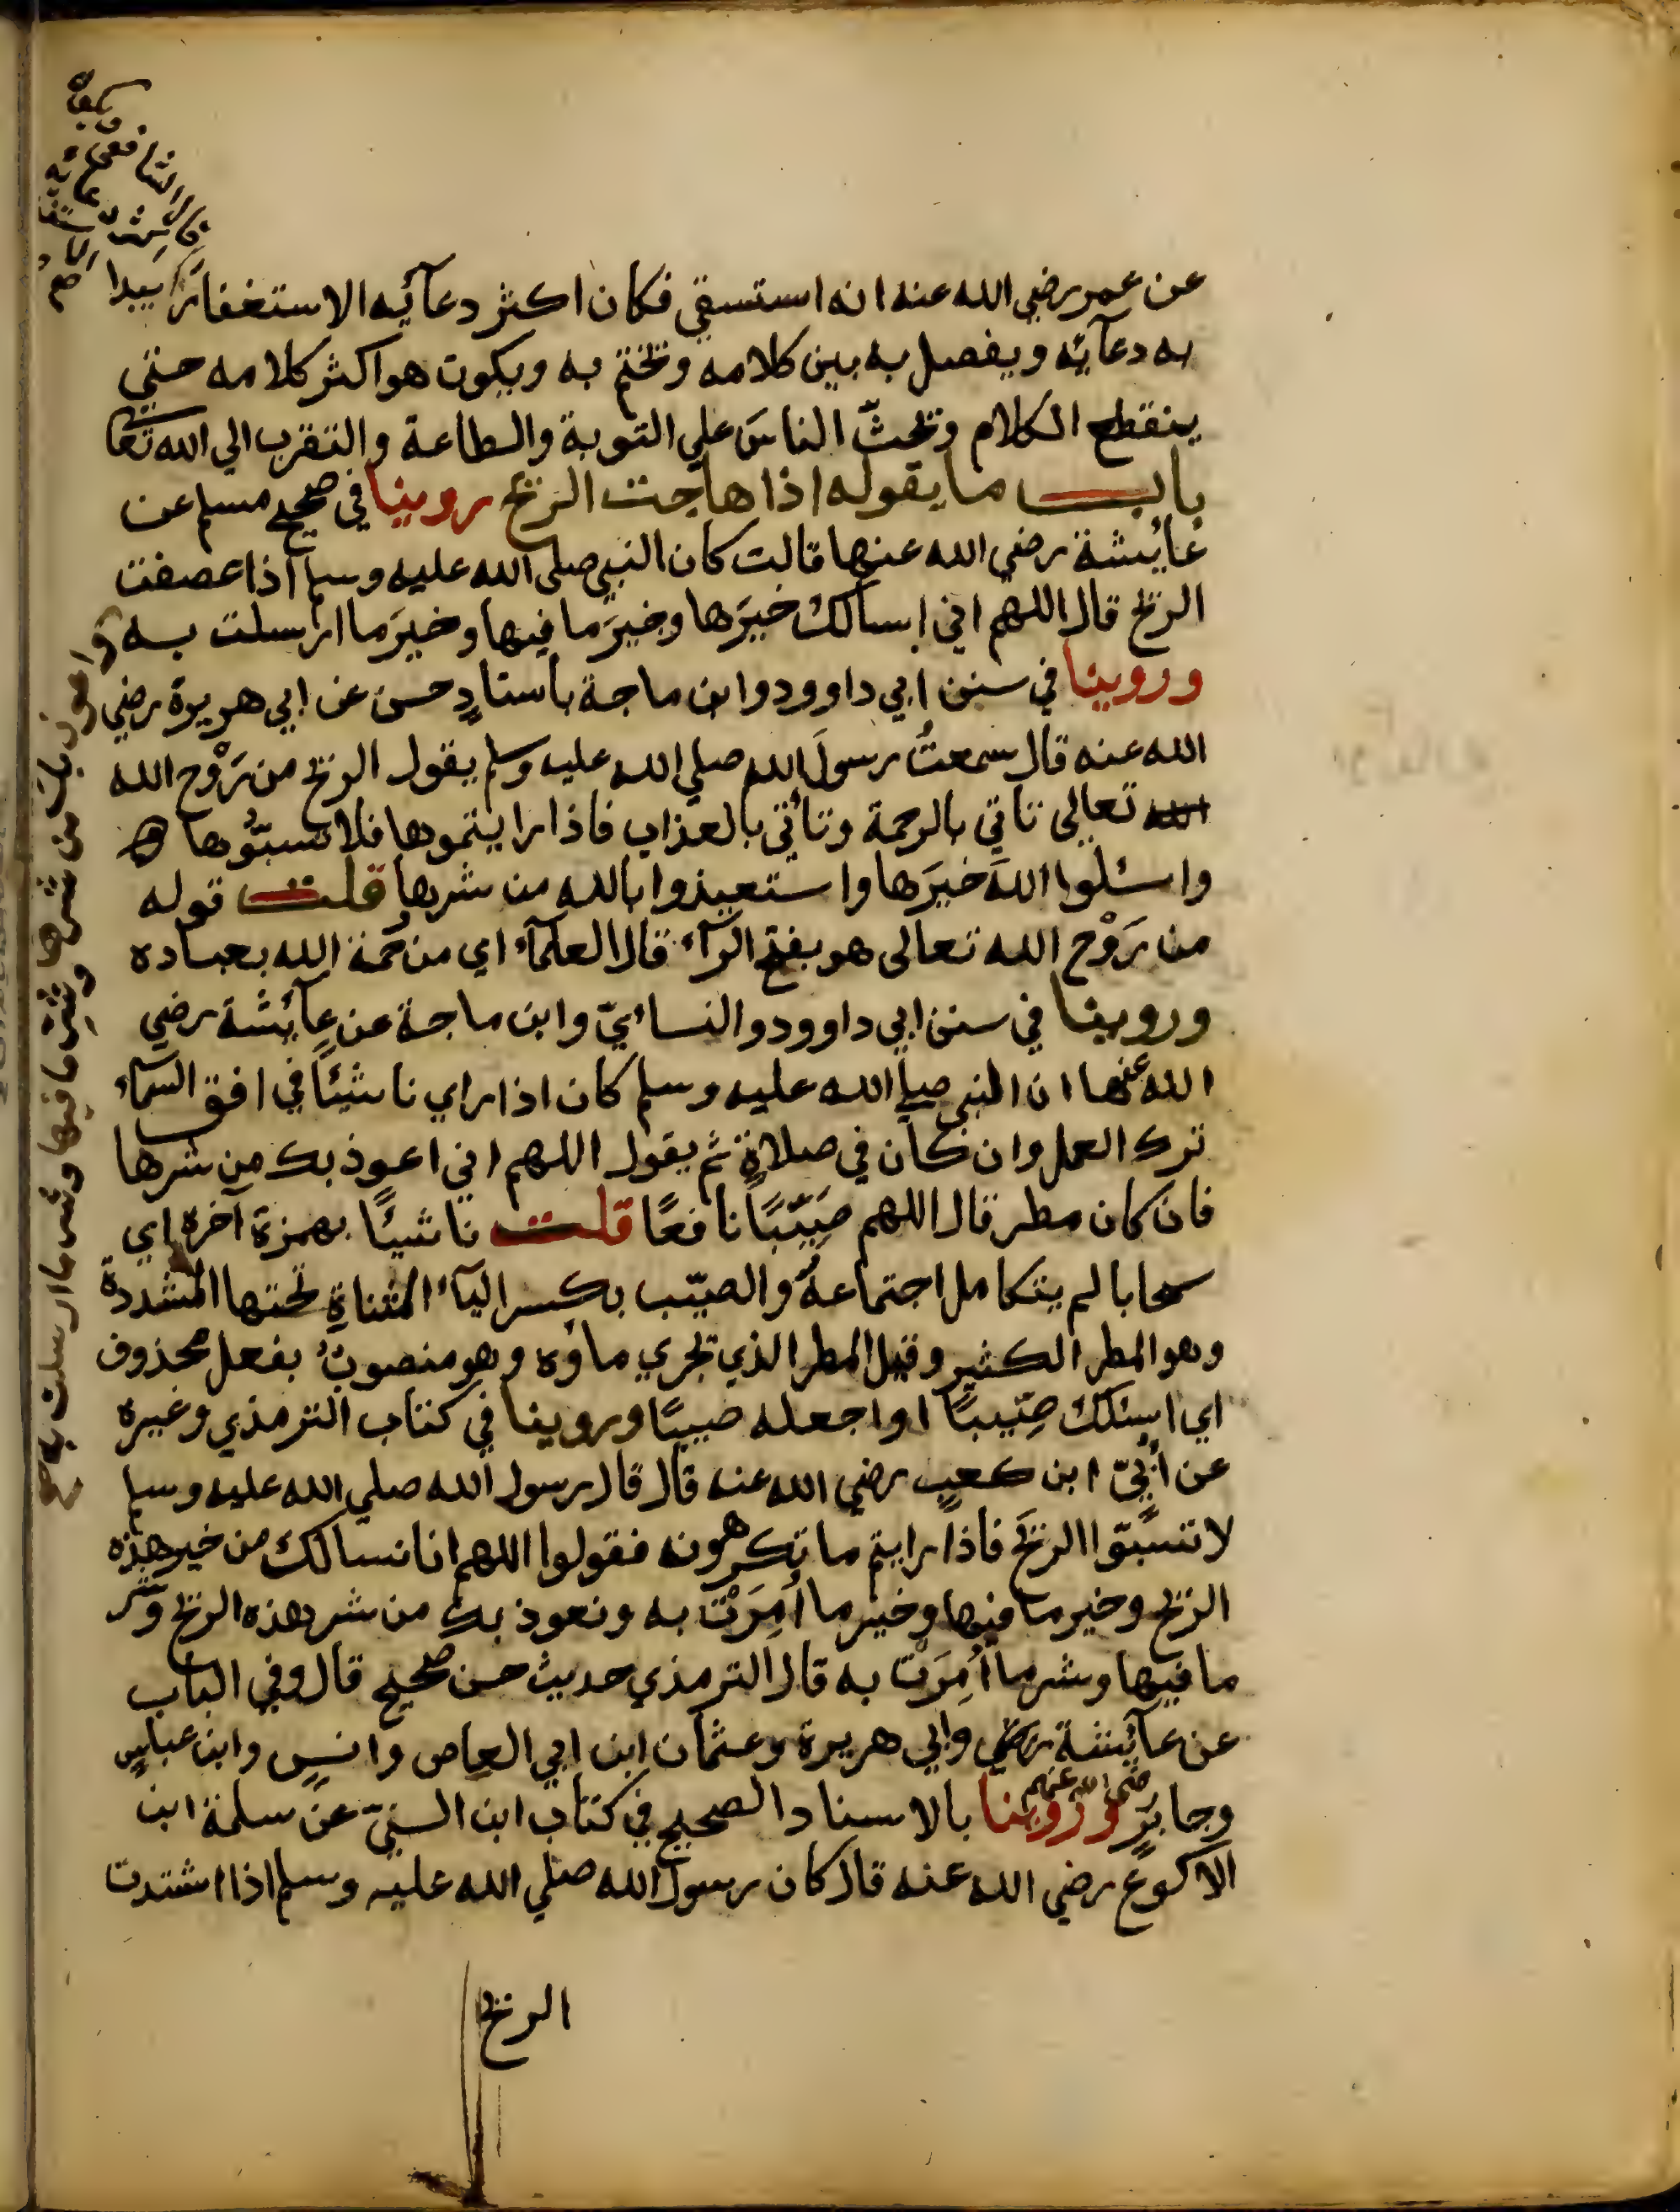 عن عمر رضي الله عنه انه استسقي فكان اكثر دعآئه الاستغفار يبدا
به دعآئه ويفصل به بين كلامه ويختم به ويكون هو اكثر كلامه حتي
ينقطع الكلام ويحثّ الناسَ علي التوبة والطاعة والتقرب الي الله تعا
باب ما يقوله اذا هاجت الريح روينا في صحيح مسلم عن
عايشة رضي الله عنها قالت كان النبي صلي الله عليه وسلم اذا عصفت
الريح قال اللهم اني اسالك خيرَها وخيرَ ما فيها وخيرَ ما ارسلت به
وروينا في سنن ابي داوود وابن ماجة باسنادٍ حسن عن ابي هريرة رضي
الله عنه قال سمعتُ رسولَ الله صلي الله عليه وسلم يقول الريح من رَوْح الله
الله تعالى تاتي بالرحمة وتأتي بالعذاب فاذا رايتموها فلا تسبّوُها
واسئلوا اللهَ خيرَها واستعيذوا بالله من شرها قلت قوله
من رَوْح الله تعالى هو بفتح الرآء قال العلمآء اي من رحمة الله بعباده
وروينا في سنن ابي داوود والنسائيّ وابن ماجة عن عآئشة رضي
الله عنها ان النبي صلي الله عليه وسلم كان اذا راي ناشيئًا في افق السمآء
ترك العمل وان كان في صلاةٍ ثم يقول اللهم اني اعوذ بك من شرها
فان كان مطر قال اللهم صَيِّبًا نافعًا قلت ناشيئًا بهمزة آخره اي
سحابا لم يتكامل اجتماعهُ والصيّب بكسر اليآء المثناةِ تحتها المشددة
وهو المطر الكثير وقيل المطر الذي يجري ماؤه وهو منصوبٌ بفعل محذوف
اي اسئلك صِّيبًا او اجعله صيبًا وروينا في كتاب الترمذي وغيره
عن أُبيّ ابن كعبٍ رضي الله عنه قال قال رسول الله صلي الله عليه وسلم
لا تسبّوا الريحَ فاذا رايتم ما تكرهونه فقولوا اللهم انا نسالك من خير هذه
الريح وخير ما فيها وخير ما أُمِرَتْ به ونعوذ بك من شر هذه الريح وشر
ما فيها وشر ما أُمِرَتْ به قال الترمذي حديث حسن صحيح قال وفي الباب
عن عآيشة رضي وابي هريرة وعثمان ابن ابي العاص وانسٍ وابن عباسٍ
وجابرٍ رضي الله عنهم وروينا بالاسناد الصحيح في كتاب ابن السنيّ عن سلمة ابن
الاكوع رضي الله عنه قال كان رسول الله صلي الله عليه وسلم اذا اشتدت
الريح
واعوذ بك من شرها وشرِّ ما فيها وشر ما ارسلت به صح
قال الشافعي